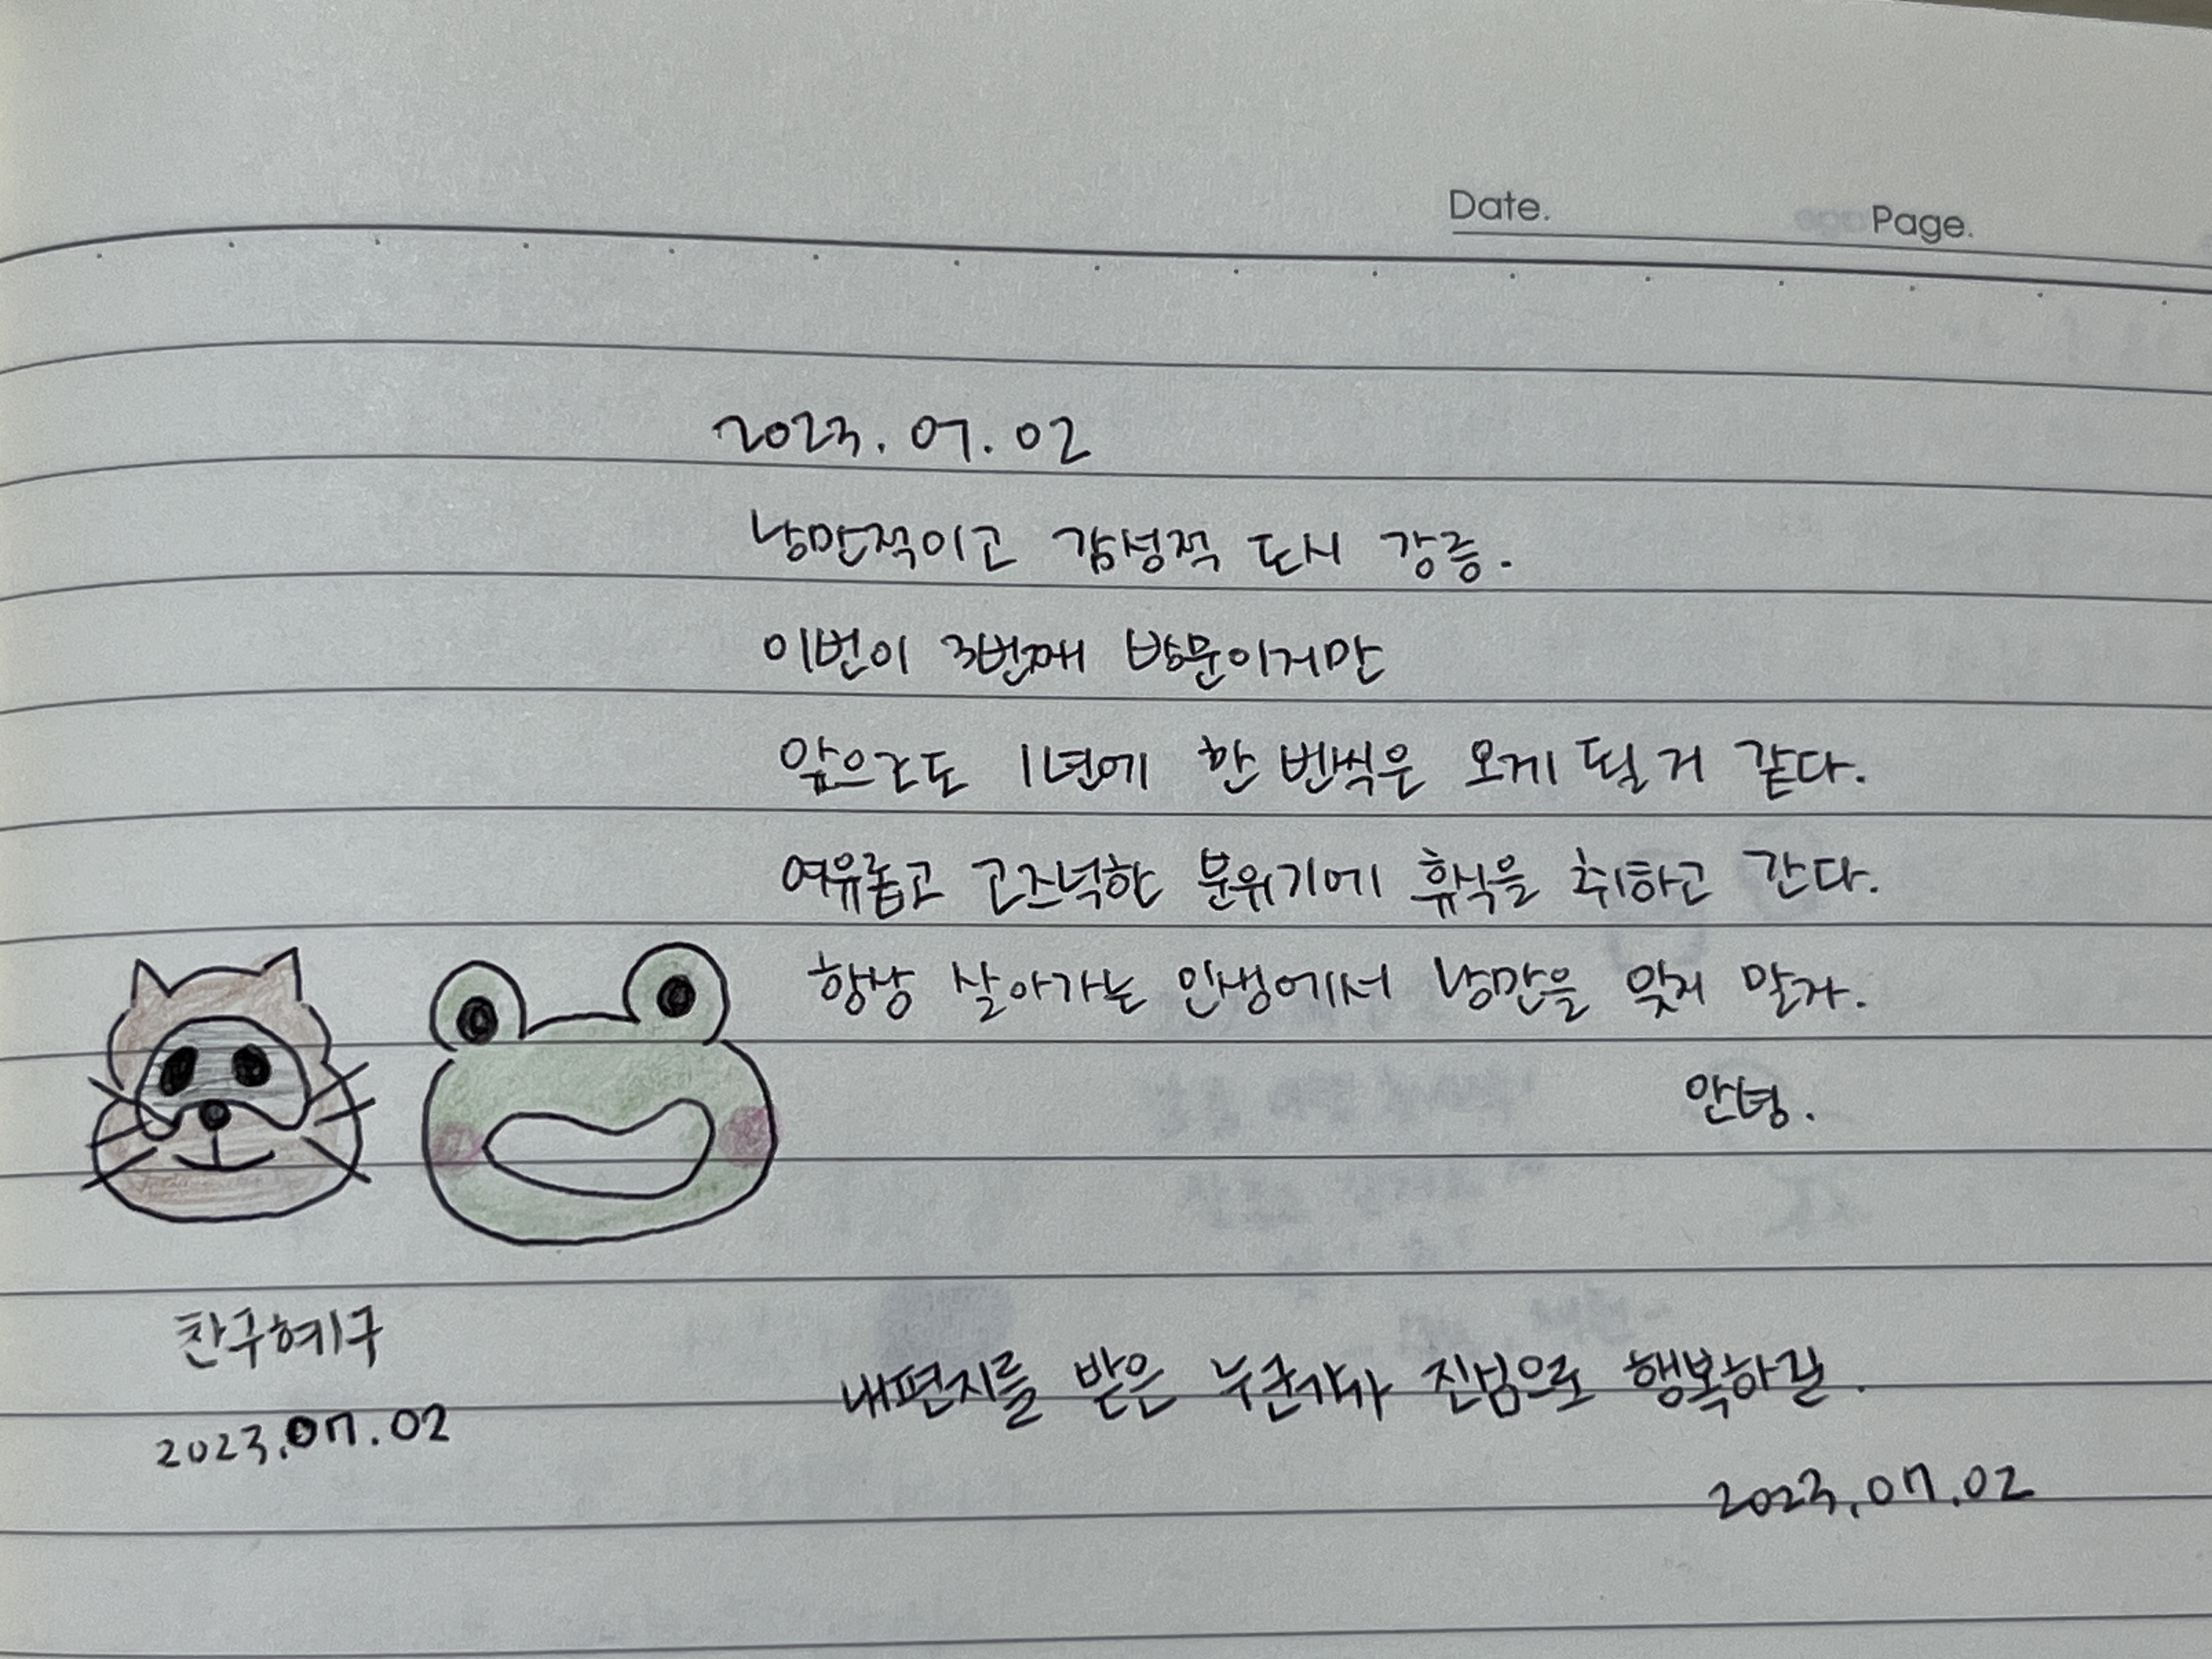 Date. Page.
2023. 07. 02
낭만적이고 감성적 도시 강릉.
이번이 3번째 방문이지만
앞으로도 1년에 한 번씩은 오게 될 거 같다.
여유롭고 고즈넉한 분위기에 휴식을 취하고 간다.
항상 살아가는 인생에서 낭만을 잊지 말자.
안녕.
찬구혜구
2023.07.02
내편지를 받은 누군가가 진심으로 행복하길.
2023.07.02